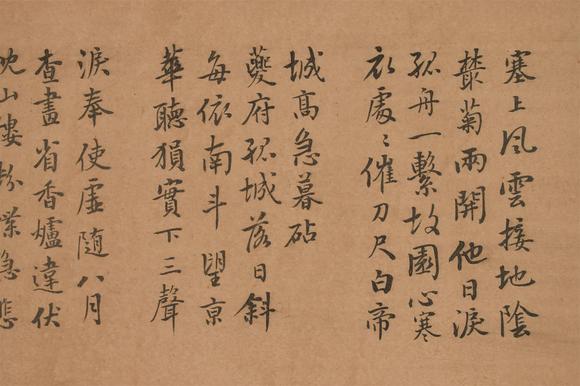 塞上風雲接地陰
叢菊兩開他日淚
孤舟一繫故園心寒
衣處〻催刀尺白帝
城高急暮砧
夔府孤城落日斜
每依南斗望京
華聽猿實下三聲
淚奉使虛隨八月
查畫省香爐違伏
枕山樓粉堞隱悲